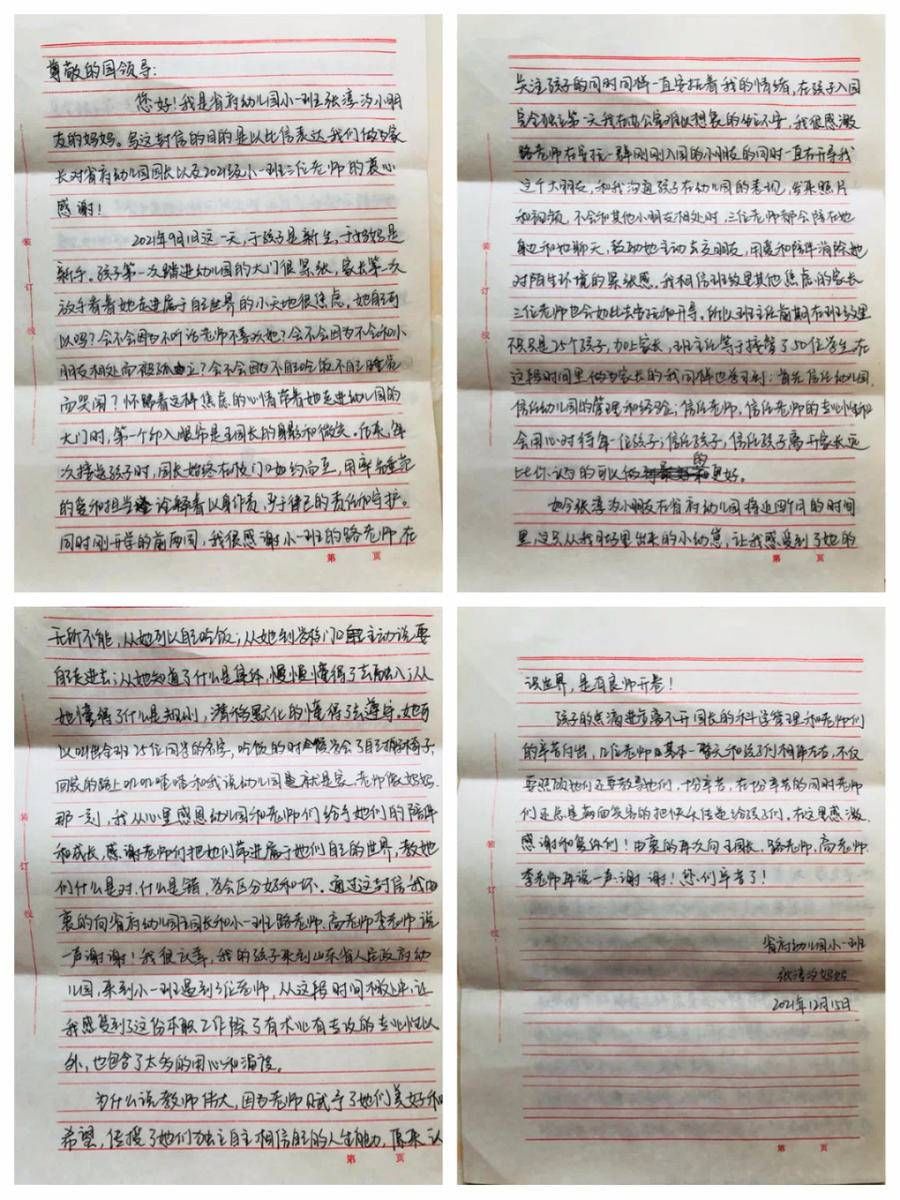 尊敬的园领导:
您好!我是省府幼儿园小一班张清汐小朋
友的妈妈。写这封信的目的是以此信表达我们做为家
长对省府幼儿园园长以及2021级小一班三位老师的衷心
感谢!
2021年9月1日这一天,于孩子是新生,于妈妈是
新手。孩子第一次踏进幼儿园的大门很紧张,家长第一次
放手看着她走进属于自己世界的小天地很焦虑。她自己可
以吗?会不会因为不听话老师不喜欢她?会不会因为不会和小
朋友相处而被孤立?会不会因为不自己吃饭不自己睡觉
而哭闹?怀揣着这样焦虑的心情带着她走进幼儿园的
大门时,第一个印入眼帘是王园长的身影和微笑。后来,每
次接送孩子时,园长始终在校门口如约而至,用率先垂范
的爱和担当诠释着以身作责,严于律己的责任和守护。
同时刚开学的前两周,我很感谢小一班的路老师,在
第 页
关注孩子的同时同样一直安抚着我的情绪,在孩子入园
完全独立第一天我在办公室难以想象的坐立不安,我很感激
路老师在安抚一群刚刚入园的小朋友的同时一直在开导我
这个大朋友,和我沟通孩子在幼儿园的表现,发来照片
和视频,不会和其他小朋友相处时,三位老师都会陪在她
身边和她聊天,鼓励她主动去交朋友,用爱和陪伴消除她
对陌生环境的紧张感。我相信班级里其他焦虑的家长
三位老师也会如此去安抚和开导。所以班主任前期在班级里
不只是25个孩子,加上家长,班主任等于接管了50位学生,在
这段时间里,做为家长的我同样也学习到:首先信任幼儿园,
信任幼儿园的管理和经验;信任老师,信任老师的专业性和
会用心对待每一位孩子;信任孩子,信任孩子离开家长远
比你认为的可以做的更好。
如今张清汐小朋友在省府幼儿园将近四个月的时间
里,这只从我手里出来的小幼崽,让我感受到了她的
第 页
无所不能,从她可以自己吃饭;从她到学校门口主动说要
自己走进去;从她知道了什么是集体,慢慢懂得了去融入;从
她懂得了什么是规则,潜移默化的懂得了去遵守,她可
以叫出全班25位同学的名字,吃饭的时候学会了自己搬椅子,
回家的路上叽叽喳喳和我说幼儿园就是家,老师像妈妈。
那一刻,我从心里感恩幼儿园和老师们给予她们的陪伴
和成长,感谢老师们把她们带进属于她们自己的世界,教她
们什么是对,什么是错,学会区分好和坏。通过这封信我由
衷的向省府幼儿园王园长和小一班路老师,高老师李老师说
一声谢谢!我很庆幸,我的孩子来到山东省人民政府幼
儿园,来到小一班遇到3位老师,从这段时间不断上来,让
我感受到了这份本职工作除了有术业有专攻的专业性以
外,也包含了太多的用心和温度。
为什么说教师伟大,因为老师赋予了她们美好和
希望,传授了她们独立自主相信自己的人生能力,原来认
第 页
识世界,是有良师开卷!
孩子的点滴进步离不开园长的科学管理和老师们
的辛苦付出,几位老师基本一整天和孩子们相伴左右,不仅
要照顾她们还要教导她们,十份辛苦,在十份辛苦的同时老师
们还总是面面俱到的把快乐传递给孩子们,在这里感激
感谢和爱你们!由衷的再次向王园长,路老师,高老师
李老师再说一声:谢谢!您们辛苦了!
省府幼儿园小一班
张清汐妈妈
2021年12月15日
第 页
装
订
线